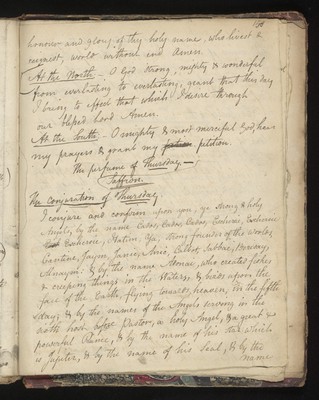 honour and glory of thy holy name, who livest &
reignest, world without end Amen.
At the North - O God strong, mighty & wonderful
from everlasting to everlasting, grant that this day
I bring to effect that which I desire through
our blessed Lord Amen.
At the South - O mighty & most merciful God, hear
my prayers & grant my petition.
The perfume of Thursday -
Saffron.
The Conjuration of Thursday
I conjure and confirm upon you, ye strong & holy
Angels, by the name Cados, Cados, Cados, Eschereie, Eschereie
Eschereie, Hatim, Ya, strong founder of the worlds,
Cantine, Jaym, Janic, Anic, Calbot, Sabbac, Berisay,
Alnaym: & by the name Adonai, who created fishes
& creeping things in the Waters, & birds upon the
face of the Earth, flying towards heaven, in the fifth
day; & by the names of the Angels serving in the
sixth host before Pastor, a holy Angel, & a great &
powerful Prince, & by the name of his star which
is Jupiter, & by the name of his Seal, & by the
name